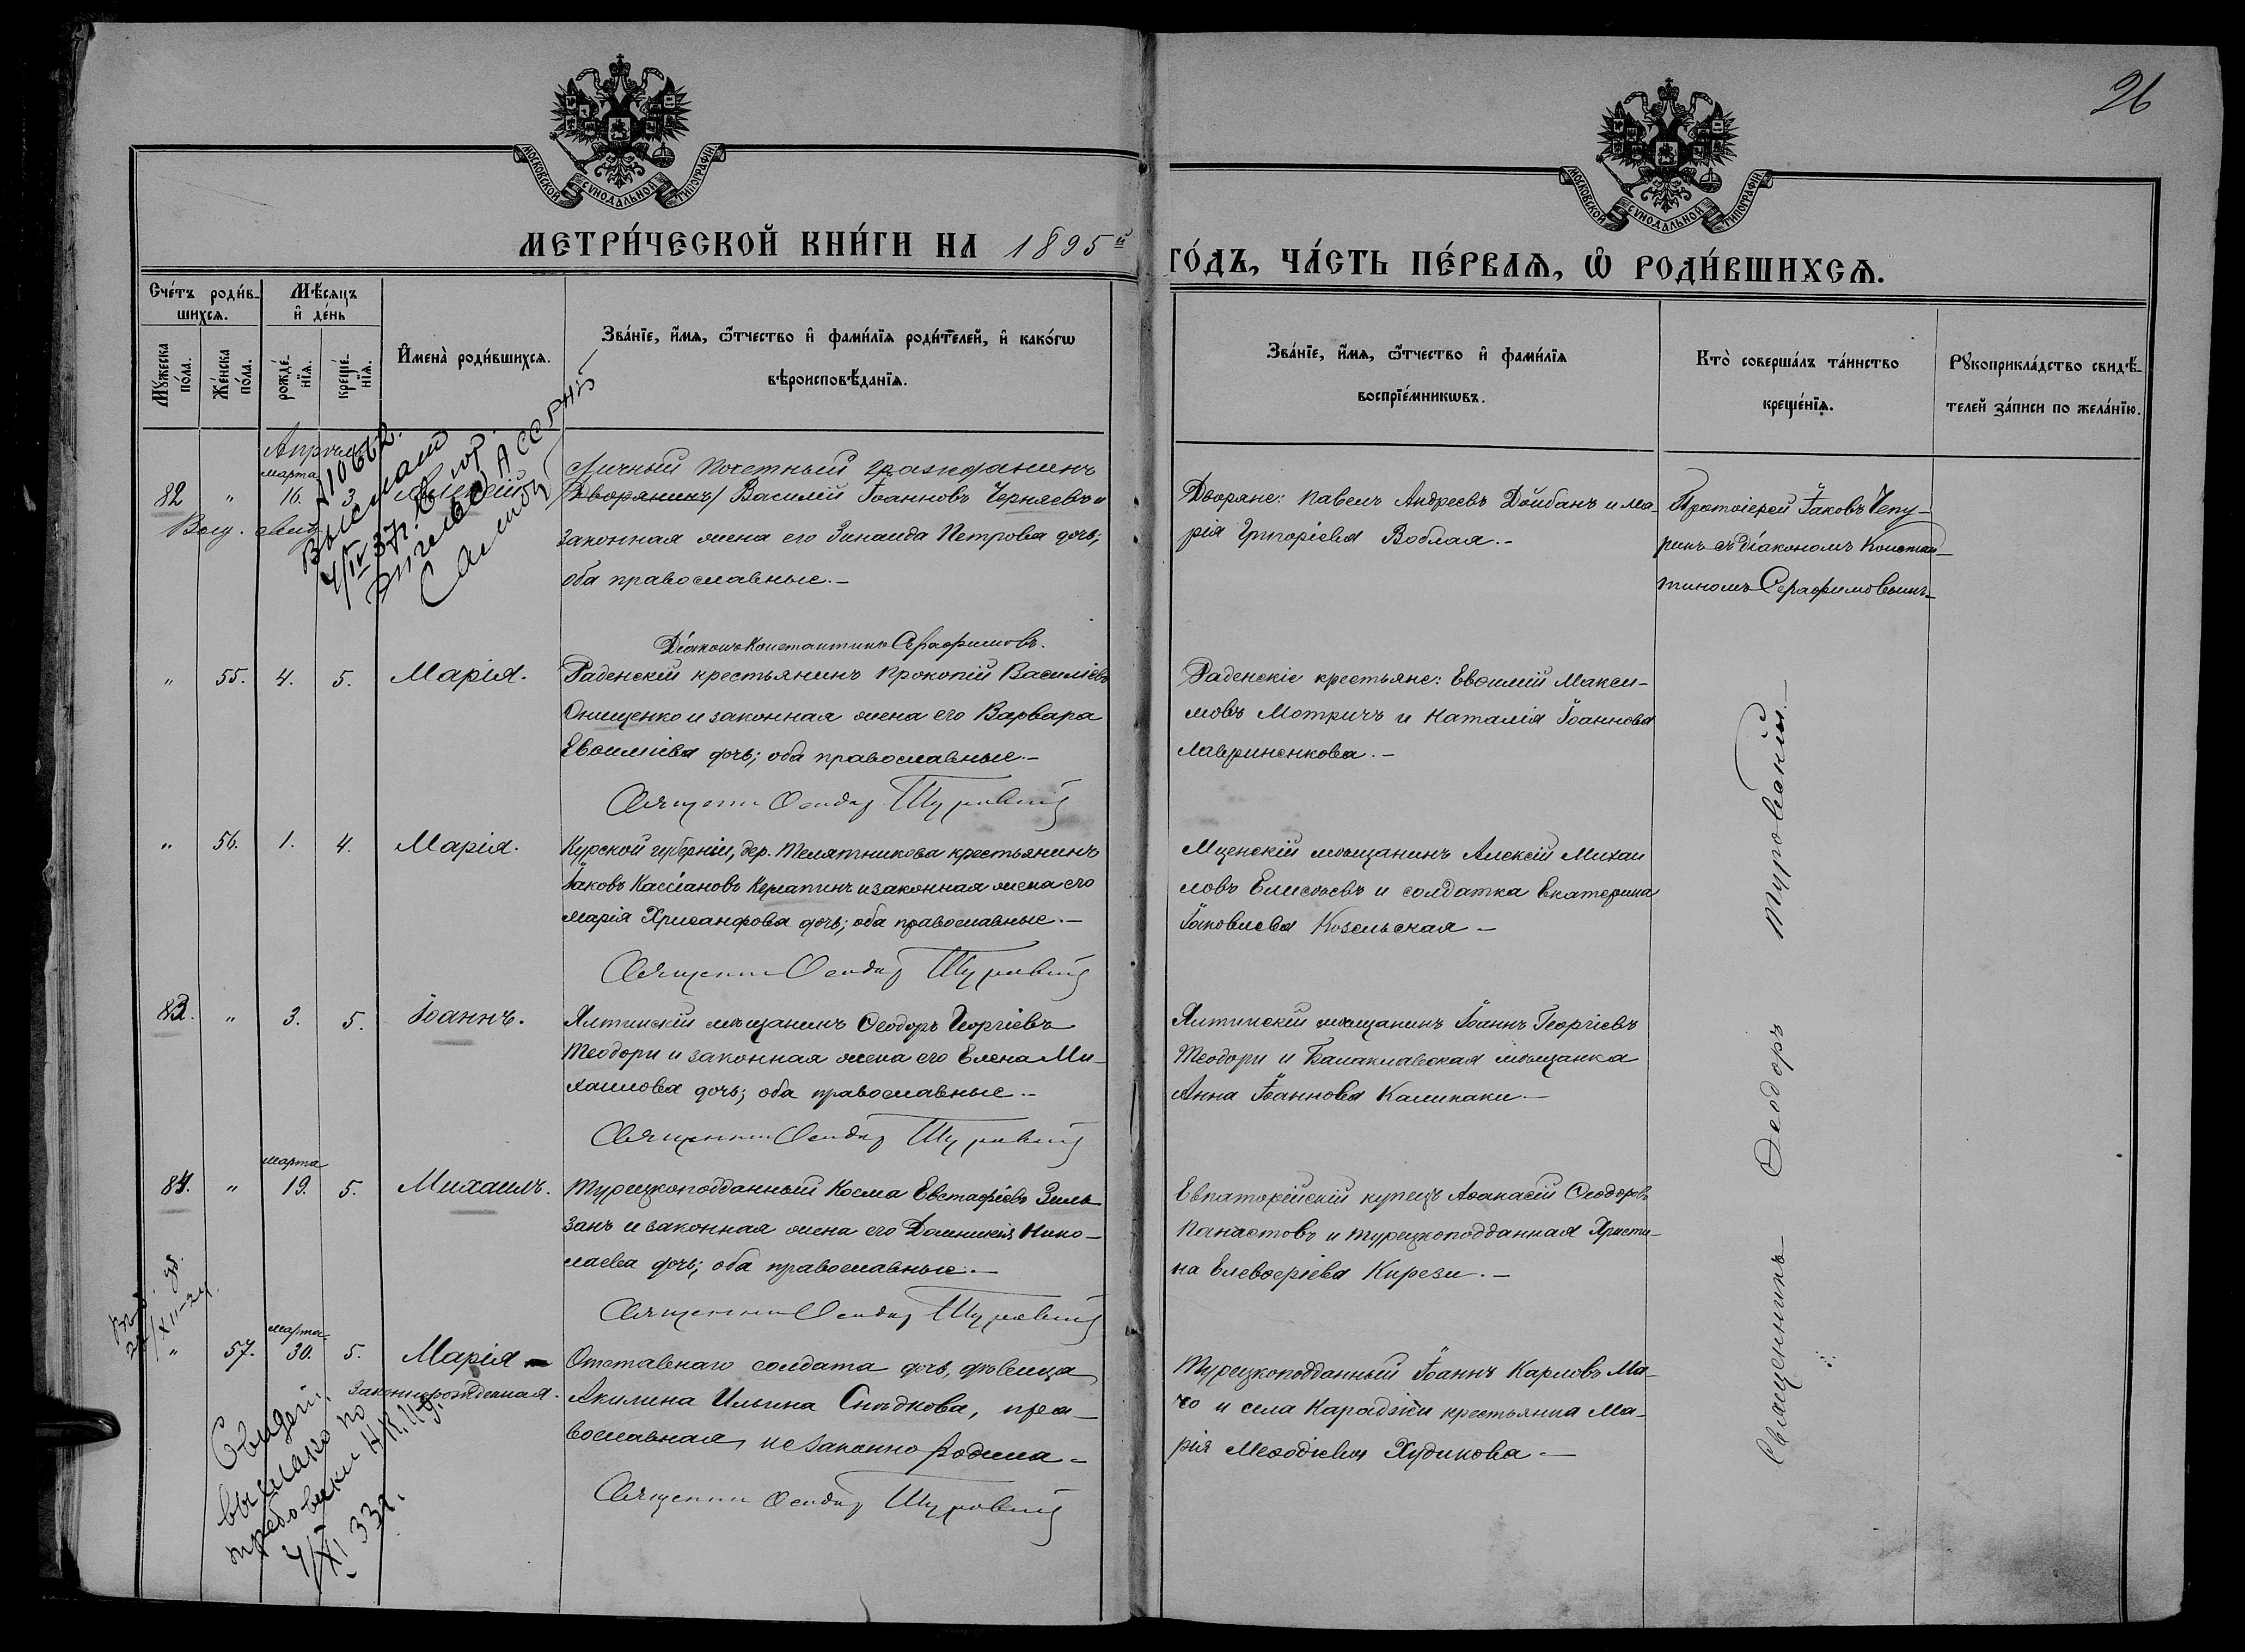 26
МОСКОВСКОЙ СѴНОДАЛЬНОЙ ТИПОГРАФІИ
МОСКОВСКОЙ СѴНОДАЛЬНОЙ ТИПОГРАФІИ
МЕТРИ́ЧЕСКОЙ КНИ́ГИ НА 1895й
ГО́ДЪ, ЧА́СТЬ ПЕ́РВАѦ, Ѡ РОДИ́ВШИХСѦ.
Сче́тъ роди́в-
шихсѧ.
Мѣ́сѧцъ
и҆ де́нь
Мꙋ́жеска
по́ла.
Же́нска
по́ла.
рожде́-
нїѧ.
креще́-
нїѧ.
И҆мена̀ роди́вшихсѧ.
Зва́нїе, и҆́мѧ, ѻ҆́тчество и҆ фами́лїѧ роди́телей, и҆ како́гѡ
вѣроисповѣ́данїѧ.
Зва́нїе, и҆́мѧ, ѻ҆́тчество и҆ фами́лїѧ
воспрїе́мникѡвъ.
Кто̀ соверша́лъ та́инство
креще́нїѧ.
Рꙋкоприкла́дство свидѣ́-
телей за́писи по жела́нїю.
Апрѣль
марта
82 " 16. 3
Личный почетный гражданинъ
/Дворянинъ/ Василій Іоанновъ Черняевъ и
законная жена его Зинаида Петрова дочь;
оба православные.-
Діаконъ Константинъ Серафимовъ.
Дворяне: Павелъ Андреевъ Дойбанъ и Ма-
рія Григоріева Воблая.-
Протоіерей Іаковъ Чепу-
ринъ съ діакономъ Констан-
тиномъ Серафимовымъ.-
Выслано
4/IV 37г.
" 55. 4. 5. Марія.
Раденскій крестьянинъ Прокопій Василіевъ
Онищенко и законная жена его Варвара
Евѳиміева дочь; оба православные.-
Священни Ѳеодор Туровский
Раденскіе крестьяне: Евѳимій Макси-
мовъ Мотричъ и Наталія Іоаннова
Лавриненкова.-
" 56. 1. 4. Марія.
Курской губерніи, дер. Телятникова крестьянинъ
Іаковъ Кассіановъ Керапинъ и законная жена его
Марія Хрисанфова дочь; оба православные.-
Священни Ѳеодор Туровский
Мценскій мѣщанинъ Алексій Михаи
ловъ Елисѣевъ и солдатка Екатерина
Іаковлева Козельская -
83. " 3. 5. Іоаннъ.
Ялтинскій мѣщанинъ Ѳеодоръ Георгіевъ
Теодори и законная жена его Елена Ми-
хаилова дочь; оба православные.-
Священни Ѳеодор Туровский
Ялтинскій мѣщанинъ Іоаннъ Георгіевъ
Теодори и Балаклавская мѣщанка
Анна Іоаннова Каликаки.-
марта
84. " 19. 5. Михаилъ.
Турецкоподданный Косма Евстафіевъ Зиль
занъ и законная жена его Домникія Нико-
лаева дочь; оба православные.-
Священни Ѳеодор Туровский
Евпаторійскій купецъ Аѳанасій Ѳеодоровъ
Панастовъ и турецкоподданная Христи-
на Елевѳеріева Кирези.-
марта
" 57. 30. 5. Марія
Законнорожденная.
Отставнаго солдата дочь, дѣвица
Акилина Ильина Снѣдкова, пра-
вославная, незаконно родила.-
Священни Ѳеодор Туровский
Турецкоподданный Іоаннъ Карловъ Ма-
чо и села Карадзіи крестьянка Ма-
рія Меѳодіева Худикова.-
Священникъ Ѳеодоръ Туровскій-
Свидет.
выслано по
требовани
4/XI 33г.